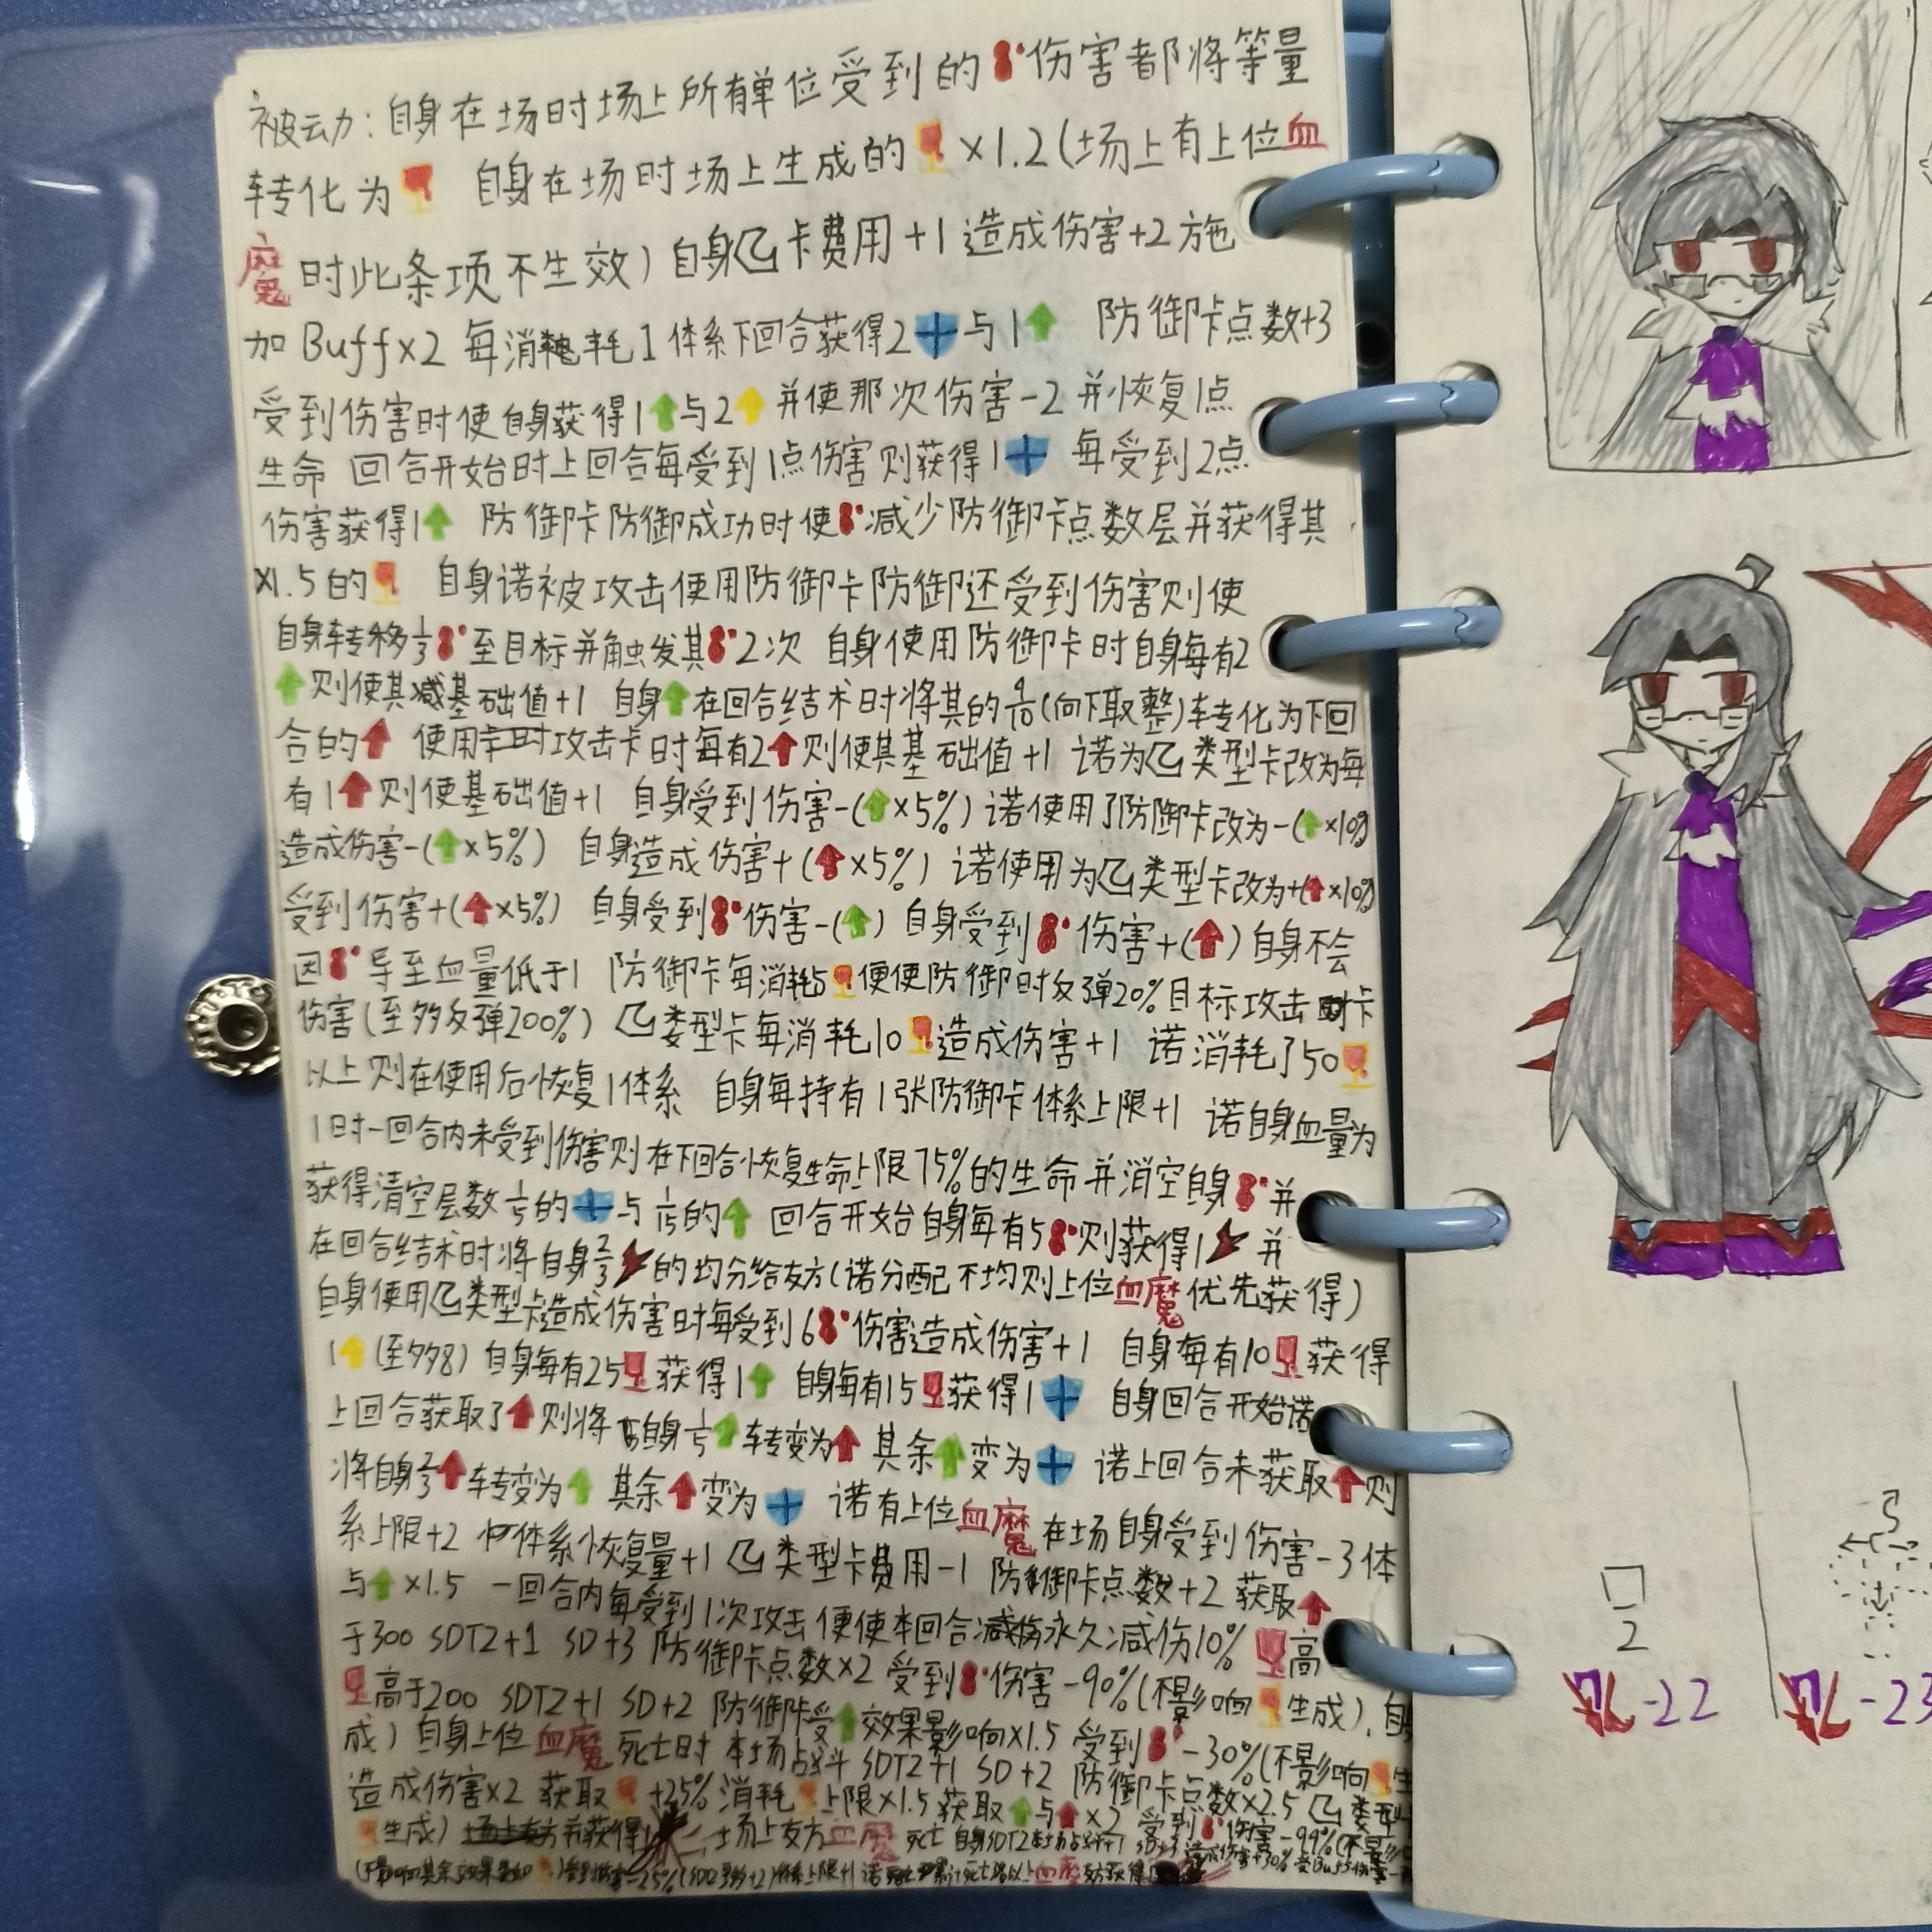 被动：自身在场时场上所有单位受到的伤害都将等量
转化为 自身在场时场上生成的×1.2(场上有上位血
魔时此条项不生效) 自身卡费用+1 造成伤害+2 施
加Buff×2 每消耗1体系下回合获得2与1 防御卡点数+3
受到伤害时使自身获得1与2并使那次伤害-2 并恢复1点
生命 回合开始时上回合每受到1点伤害则获得1 每受到2点
伤害获得1 防御卡防御成功时使减少防御卡点数层并获得其
×1.5的 自身诺被攻击使用防御卡防御还受到伤害则使
自身转移1/3至目标并触发其2次 自身使用防御卡时自身每有2
则使其基础值+1 自身在回合结术时将其的9/10(向下取整)转化为下回
合的 使用攻击卡时每有2则使其基础值+1 诺为类型卡改为每
有1则使基础值+1 自身受到伤害-(×5%) 诺使用了防御卡改为-(×10%)
造成伤害-(×5%) 自身造成伤害+(×5%) 诺使用为类型卡改为+(×10%)
受到伤害+(×5%) 自身受到伤害-() 自身受到伤害+() 自身不会
因导至血量低于1 防御卡每消耗5便使防御时反弹20%目标攻击卡
伤害(至多反弹200%) 类型卡每消耗10造成伤害+1 诺消耗了50
以上则在使用后恢复1体系 自身每持有1张防御卡体系上限+1 诺自身血量为
1时一回合内未受到伤害则在下回合恢复生命上限75%的生命并消空自身并
获得清空层数1/5的与1/15的 回合开始自身每有5则获得1并
在回合结术时将自身2/3的均分给友方(诺分配不均则上位血魔优先获得)
自身使用类型卡造成伤害时每受到6伤害造成伤害+1 自身每有10获得
1(至多8) 自身每有25获得1 自身每有15获得1 自身回合开始诺
上回合获取了则将自身转变为 其余变为 诺上回合未获取则
将自身2/3转变为 其余变为 诺有上位血魔在场自身受到伤害-3 体
系上限+2 体系恢复量+1 类型卡费用-1 防御卡点数+2 获取
与×1.5 一回合内每受到1次攻击便使本回合永久减伤10% 高
于300 SDT2+1 SD+3 防御卡点数×2 受到伤害-90%(不影响生成)
高于200 SDT2+1 SD+2 防御卡受效果影响×1.5 受到-30%(不影响生
成) 自身上位血魔死亡时 本场战斗SDT2+1 SD+2 防御卡点数×2.5 类型
造成伤害×2 获取+25% 消耗上限×1.5 获取与×2 受到伤害-99%(不影
生成) 场上友方血魔死亡 自身SDT2本场战斗+1
7-22
7-23
2
5